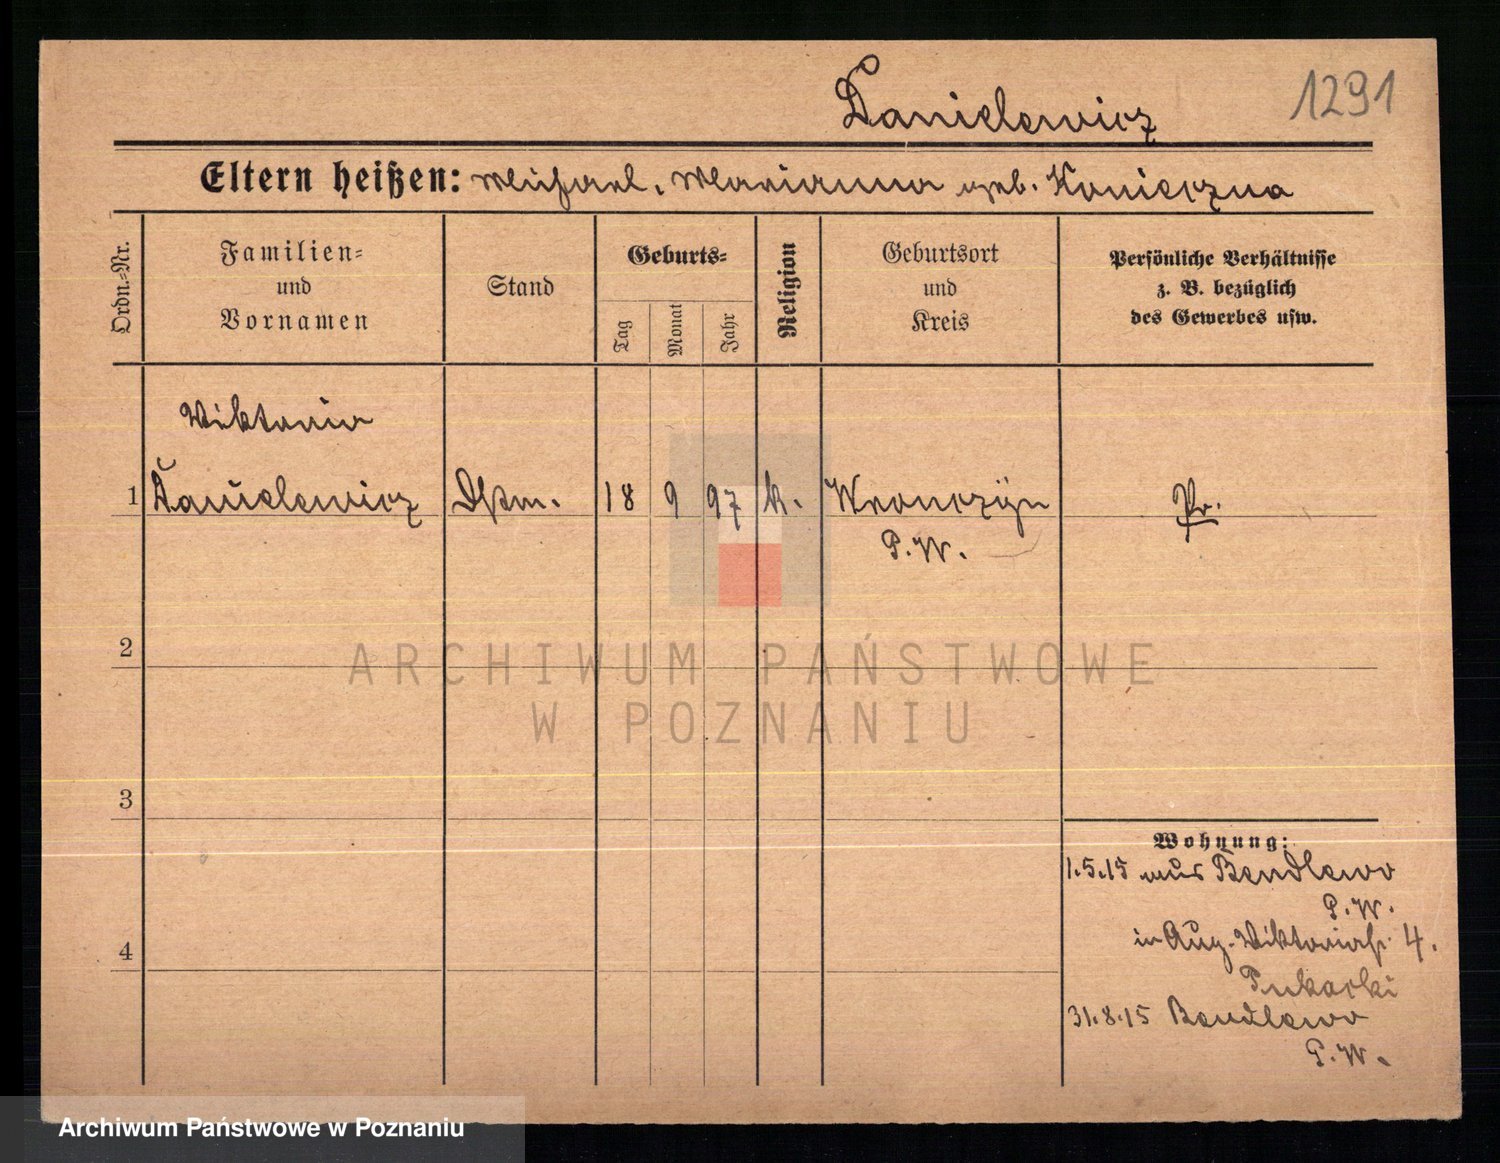 Danielewicz
1291
Eltern heißen: Michael, Marianna geb. Konieczna
Ordn.-Nr.
Familien-
und
Vornamen
Stand
Geburts-
Tag
Monat
Jahr
Religion
Geburtsort
und
Kreis
Persönliche Verhältnisse
z. B. bezüglich
des Gewerbes usw.
Viktoria
1 Danielewicz Dstm. 18 9 97 k. Wronczyn Pr.
P.W.
2
3
4
Wohnung:
1.5.15 aus Bendlewo
P.W.
in Aug. Viktoriastr. 4.
31.8.15 Bendlewo
P.W.
ARCHIWUM PAŃSTWOWE
W POZNANIU
Archiwum Państwowe w Poznaniu